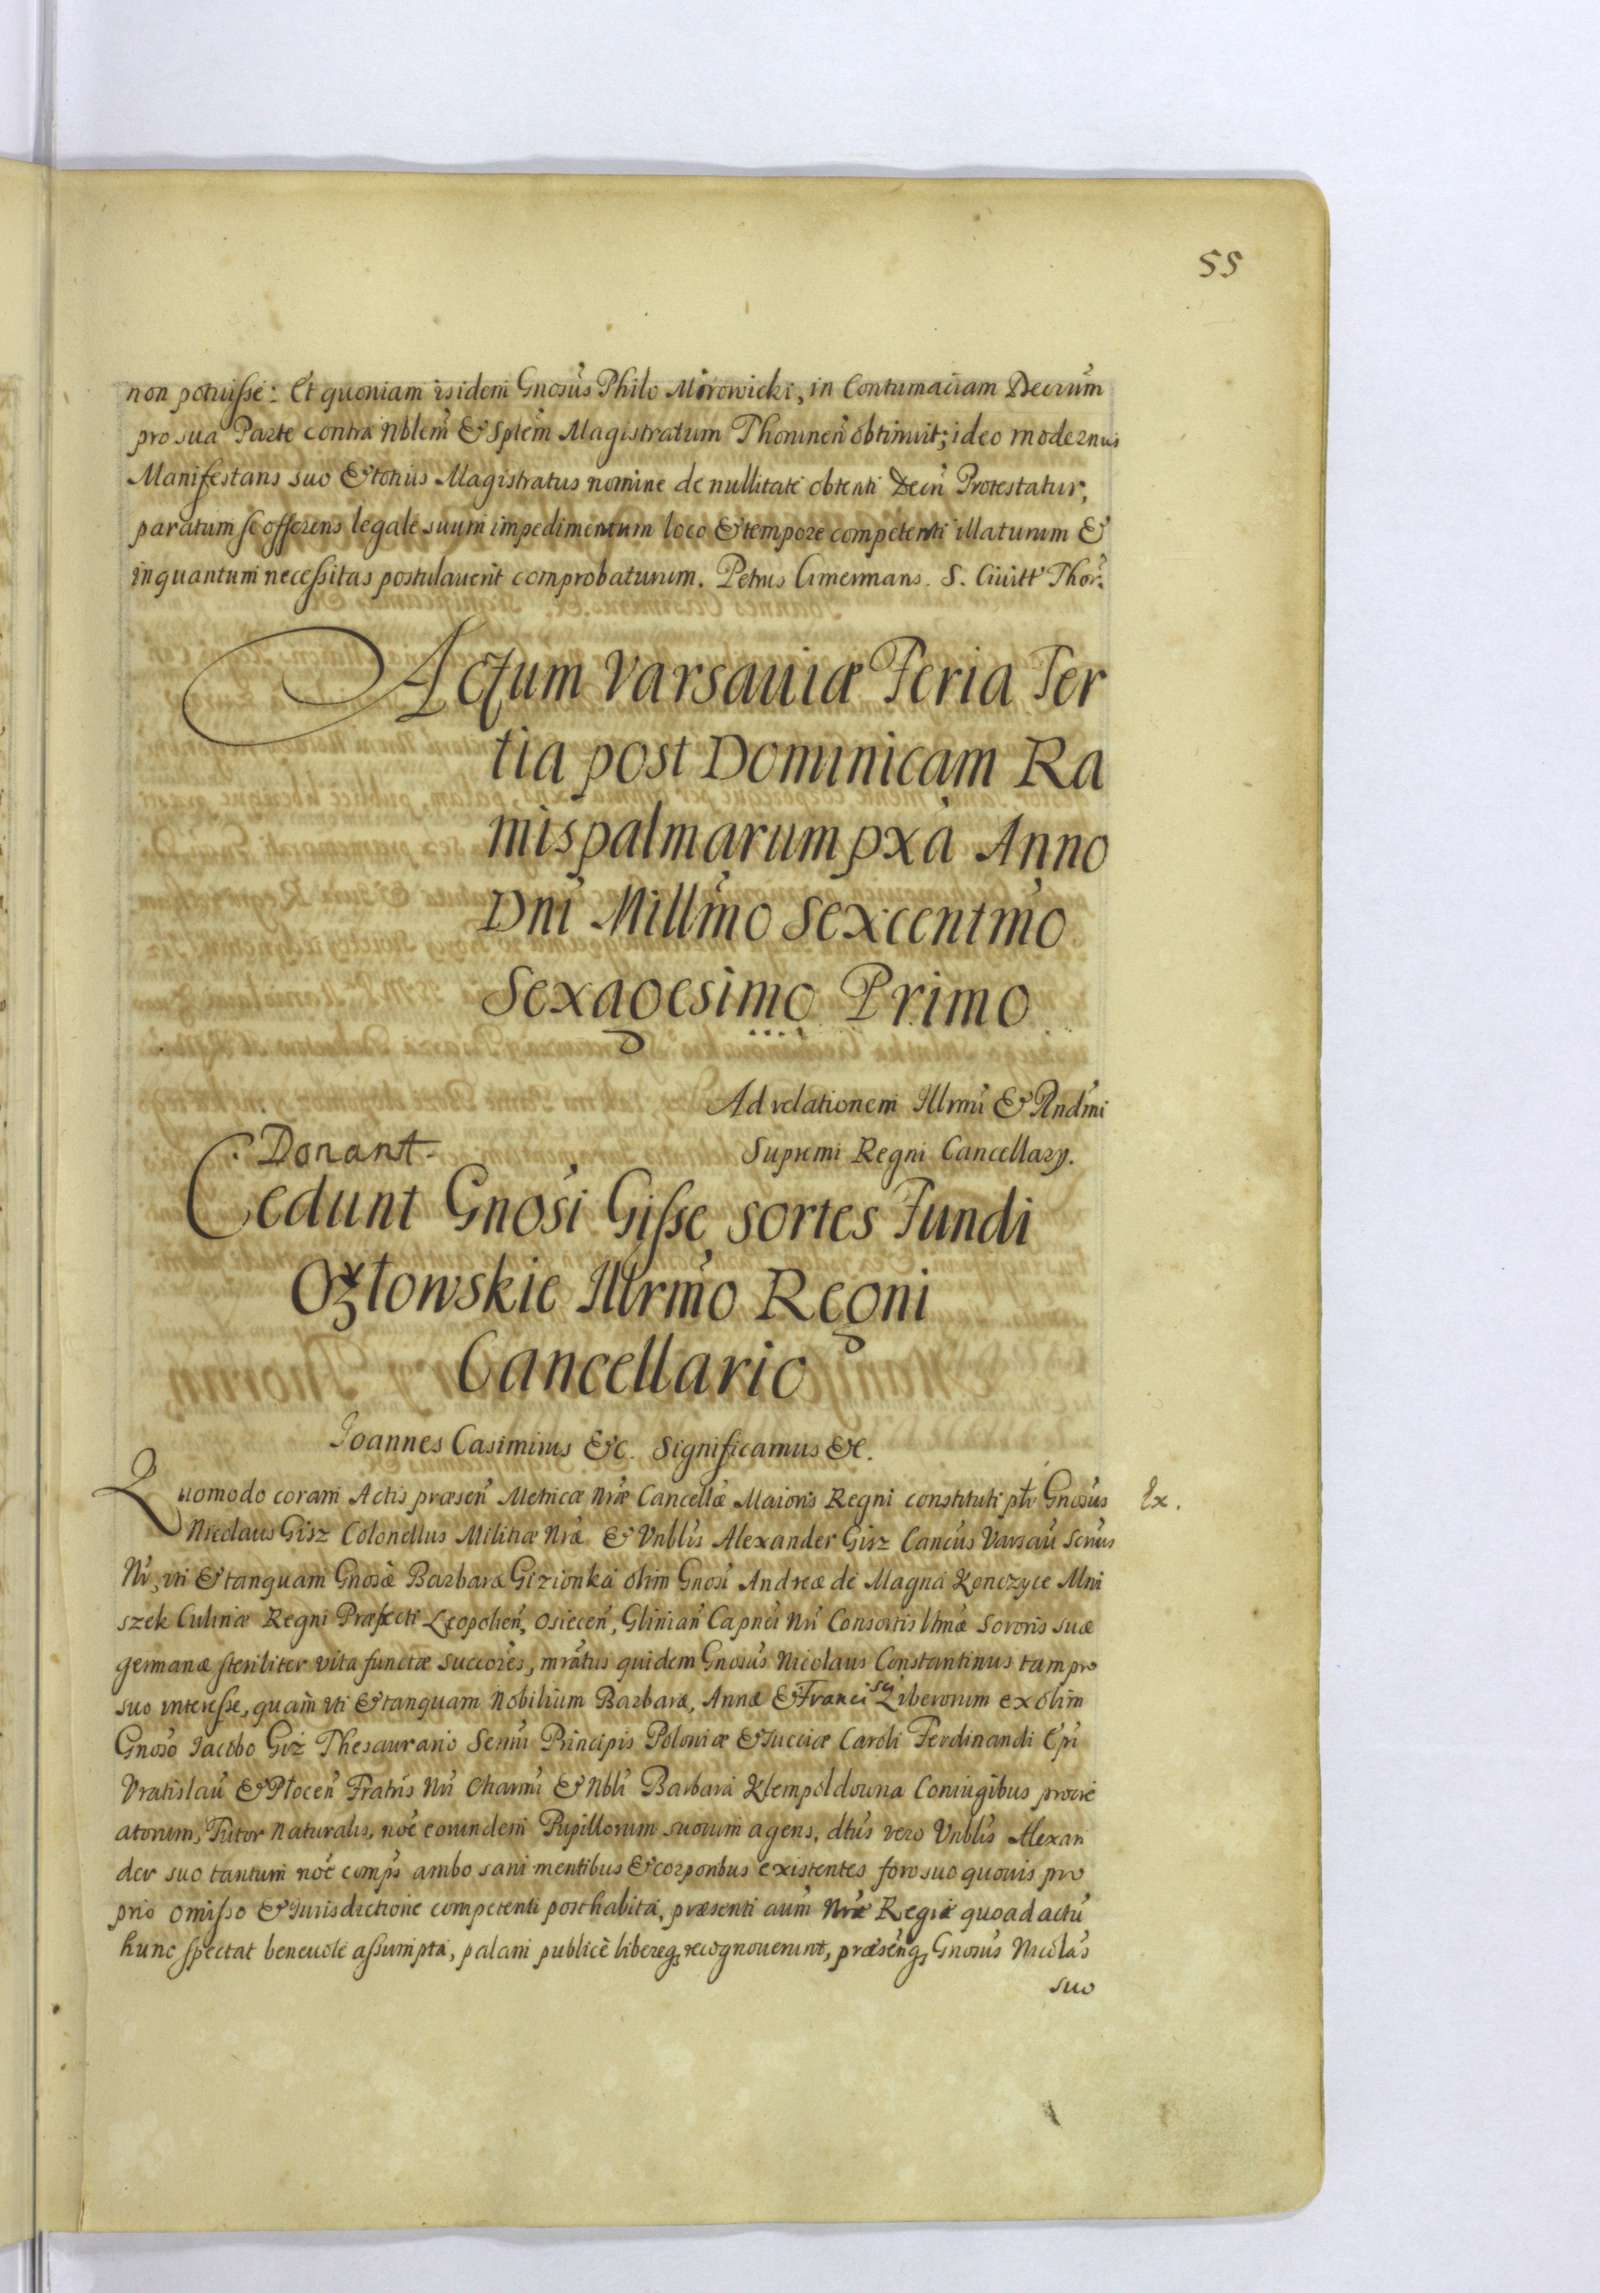 55
non potuisse: Et quoniam isidem Gnosus Philo Mirowicki, in Contumaciam Decrum
pro sua Parte contra Nblem & Splem Magistratum Thorunen obtinuit; ideo modernus
Manifestans suo & totius Magistratus nomine de nullitate obtenti Decri Protestatur,
paratum se offerens legale suum impedimentum loco & tempore competenti illaturum &
inquantum necessitas postulauerit comprobaturum. Petrus Cimermans. S. Ciuitt Thor.
Actum Varsauiæ Feria Ter
tia post Dominicam Ra
mispalmarum pxa Anno
Dni Millmo Sexcentmo
Sexagesimo Primo
Ad relationem Illrmi & Rndmi
Supremi Regni Cancellary.
Donant
Cedunt Gnosi Gisse sortes Fundi
Ożłowskie Illrmo Regni
Cancellario
Ioannes Casimirus &c. Significamus &c.
Quomodo coram Actis præsen Metricæ Nræ Cancellæ Maioris Regni constituti ptr Gnosus Ex.
Nicolaus Gisz Colonellus Militiæ Nræ & Vnblis Alexander Gisz Cancus Varsau Seruus
Nr, uti & tanquam Gnosæ Barbaræ Gizionka olim Gnosi Andreæ de Magna Konczyce Mni
szek Culinæ Regni Præfecti Leopolien, Osiecen, Glinian Capnei Nri Consortis Vtmæ Sororis suæ
germanæ steriliter vita functæ succores, mratus quidem Gnosus Nicolaus Constantinus tam pro
suo interesse, quam uti & tanquam Nobilium Barbaræ, Annæ & Francisci Liberorum ex olim
Gnoso Iacobo Giz Thesaurario Sermi Principis Poloniæ & Sueciæ Caroli Ferdinandi Epi
Vratislau & Płocen Fratris Nri Charmi & Nbli Barbara Klempoldowna Coniugibus procre
atorum, Tutor Naturalis, noe eorundem Pupillorum suorum agens, dtus vero Vnblis Alexan
der suo tantum noe comps ambo sani mentibus & corporibus existentes foro suo quouis pro
prio omisso & Iurisdictione competenti posthabita, præsenti aum Nræ Regia quoad actu
hunc spectat beneuole assumpta, palam publicè libereq recognouerunt, præsenq Gnosus Nicolas
suo